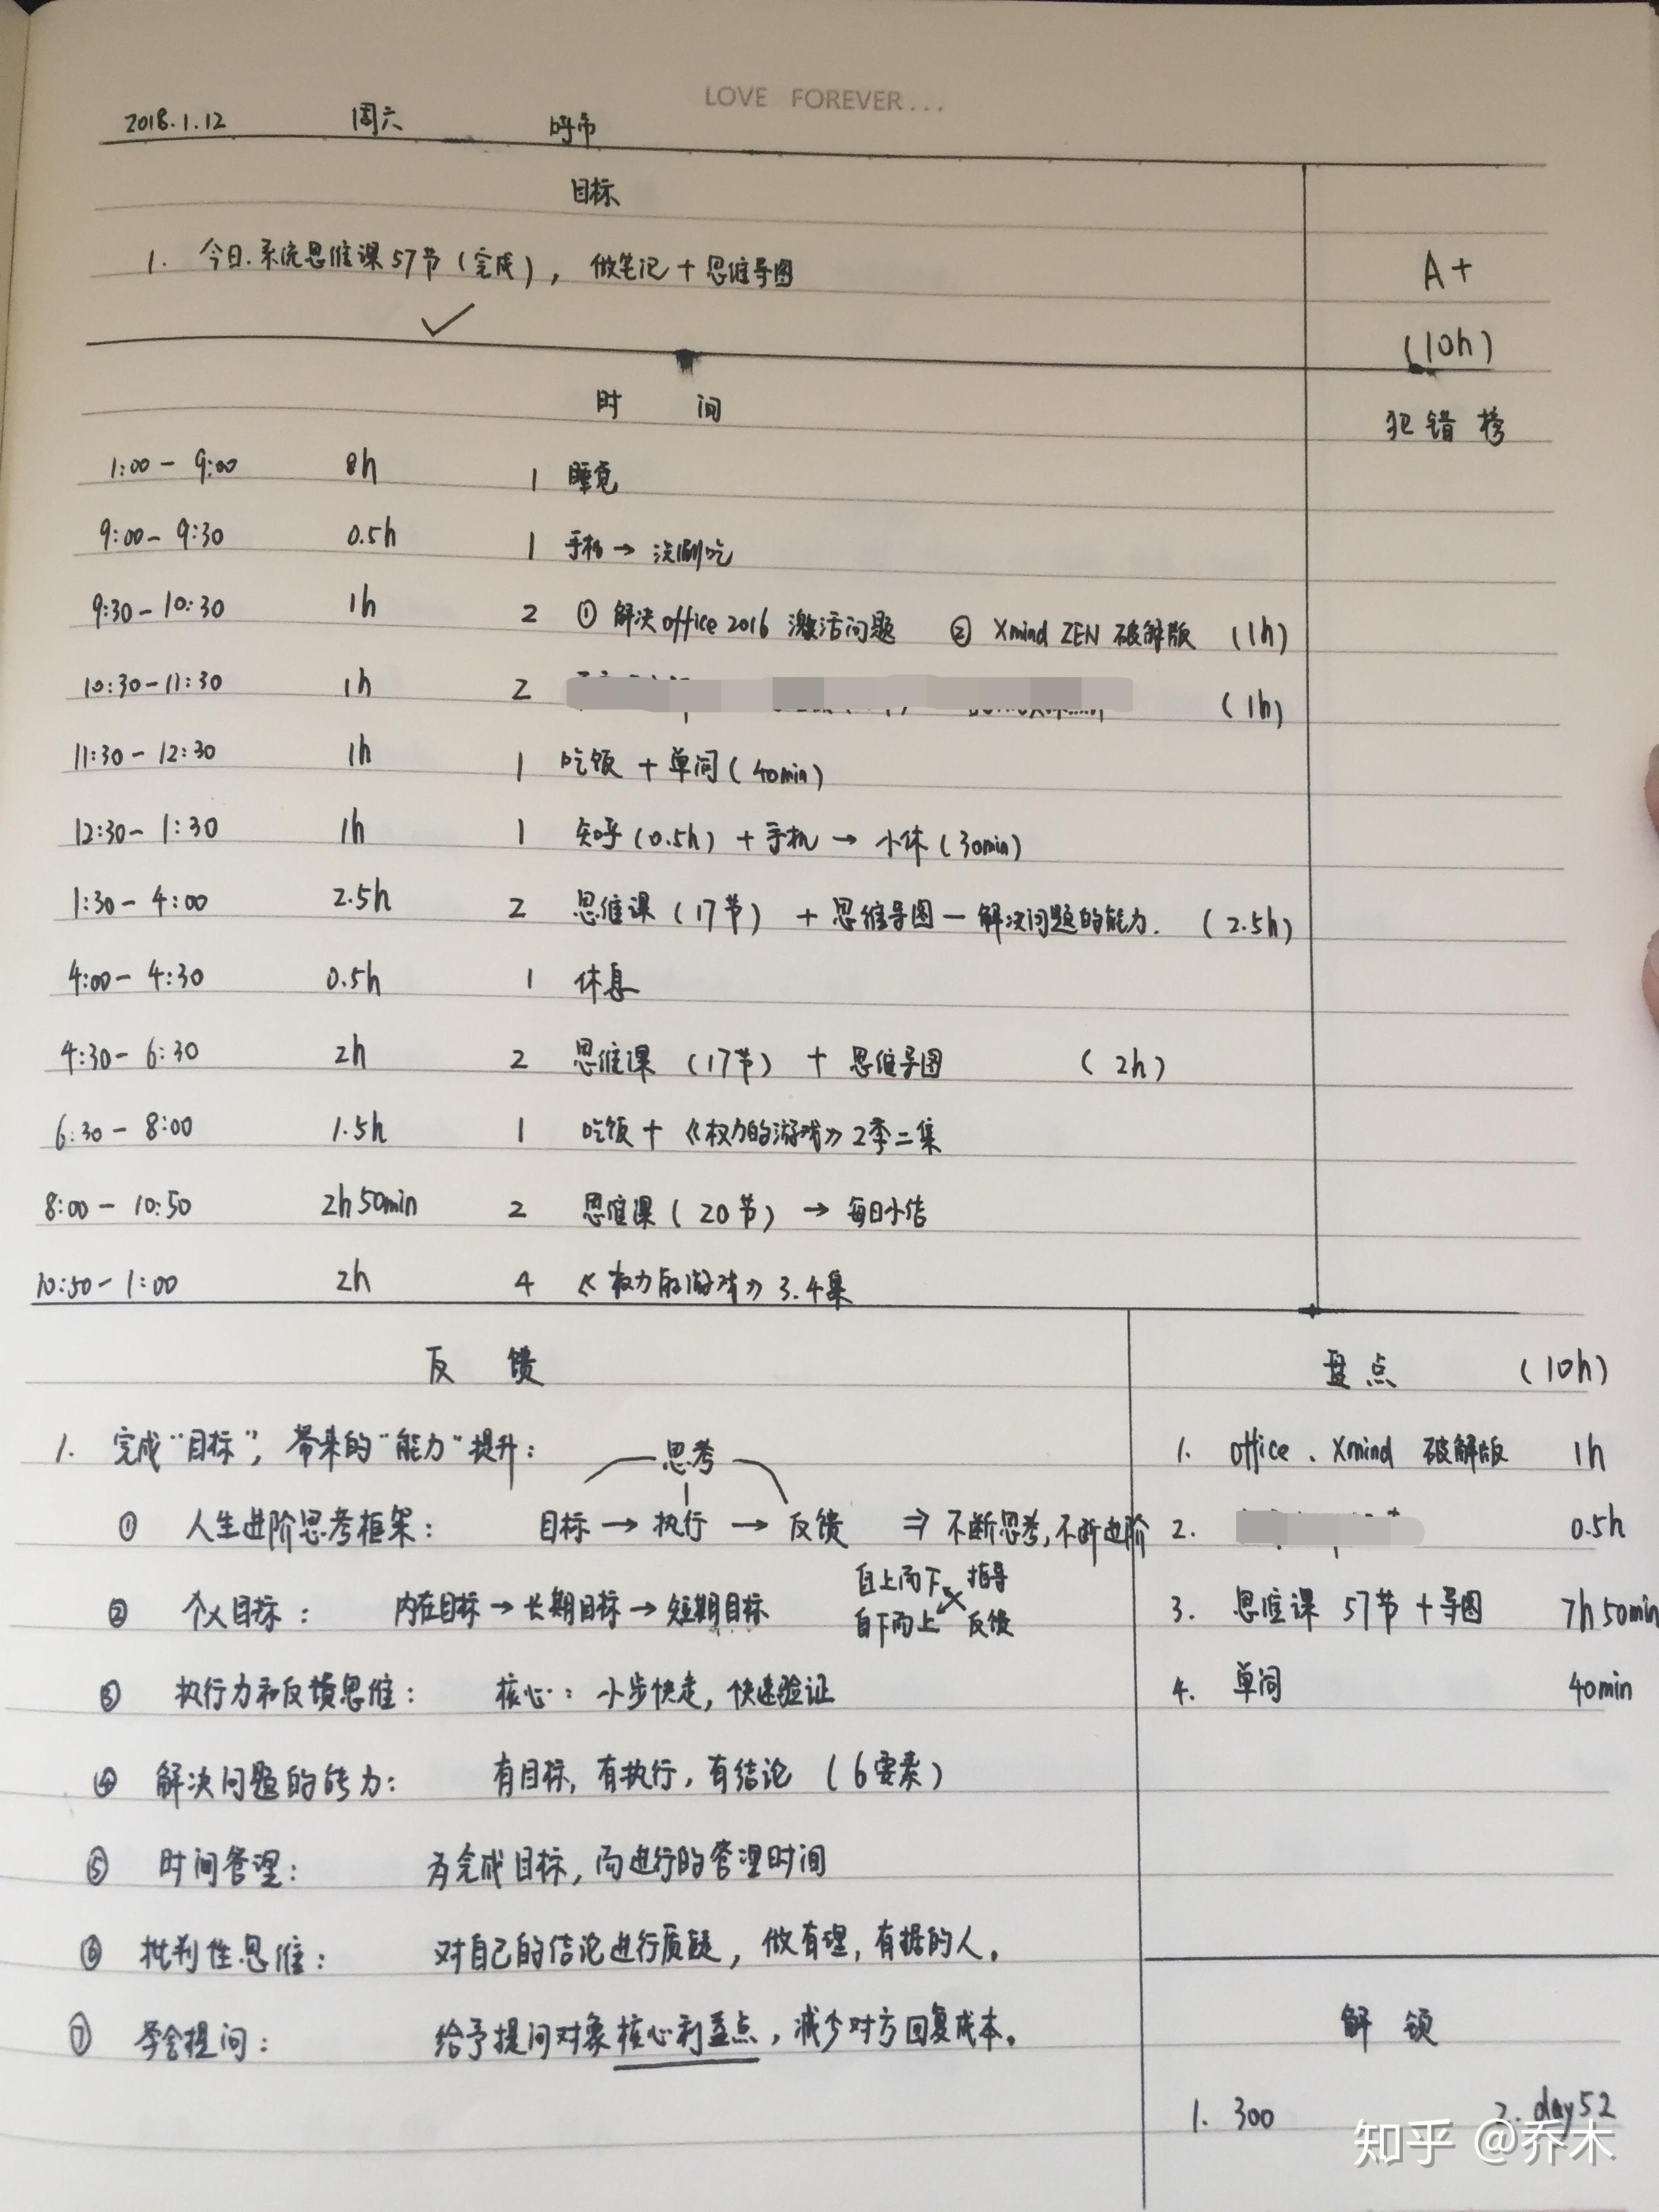 LOVE FOREVER...
2018.1.12 周六 呼市
目标
1. 今日.系统思维课57节(完成), 做笔记+思维导图
A+
(10h)
时 间
犯错榜
1:00 - 9:00 8h 1 睡觉
9:00 - 9:30 0.5h 1 手机→洗刷吃
9:30 - 10:30 1h 2 ① 解决office 2016 激活问题 ② Xmind ZEN 破解版 (1h)
10:30-11:30 1h 2 (1h)
11:30 - 12:30 1h 1 吃饭 + 单词(40min)
12:30 - 1:30 1h 1 知乎(0.5h) + 手机 → 小休(30min)
1:30 - 4:00 2.5h 2 思维课(17节) + 思维导图一解决问题的能力. (2.5h)
4:00 - 4:30 0.5h 1 休息
4:30 - 6:30 2h 2 思维课 (17节) + 思维导图 (2h)
6:30 - 8:00 1.5h 1 吃饭+《权力的游戏》2季二集
8:00 - 10:50 2h 50min 2 思维课(20节) → 每日小结
10:50 - 1:00 2h 4 《权力的游戏》3.4集
反 馈
1. 完成“目标”, 带来的“能力”提升:
思考
① 人生进阶思考框架: 目标 → 执行 → 反馈 ⇒ 不断思考,不断进阶
② 个人目标: 内在目标→长期目标→短期目标 自上而下 指导
自下而上 反馈
③ 执行力和反馈思维: 核心: 小步快走, 快速验证
④ 解决问题的能力: 有目标, 有执行, 有结论 (6要素)
⑤ 时间管理: 为完成目标, 而进行的管理时间
⑥ 批判性思维: 对自己的结论进行质疑, 做有理, 有据的人。
⑦ 学会提问: 给予提问对象核心利益点, 减少对方回复成本。
盘点 (10h)
1. office、Xmind 破解版 1h
2. 0.5h
3. 思维课 57节+导图 7h 50min
4. 单词 40min
解 锁
1. 300 2. day52
知乎 @乔木